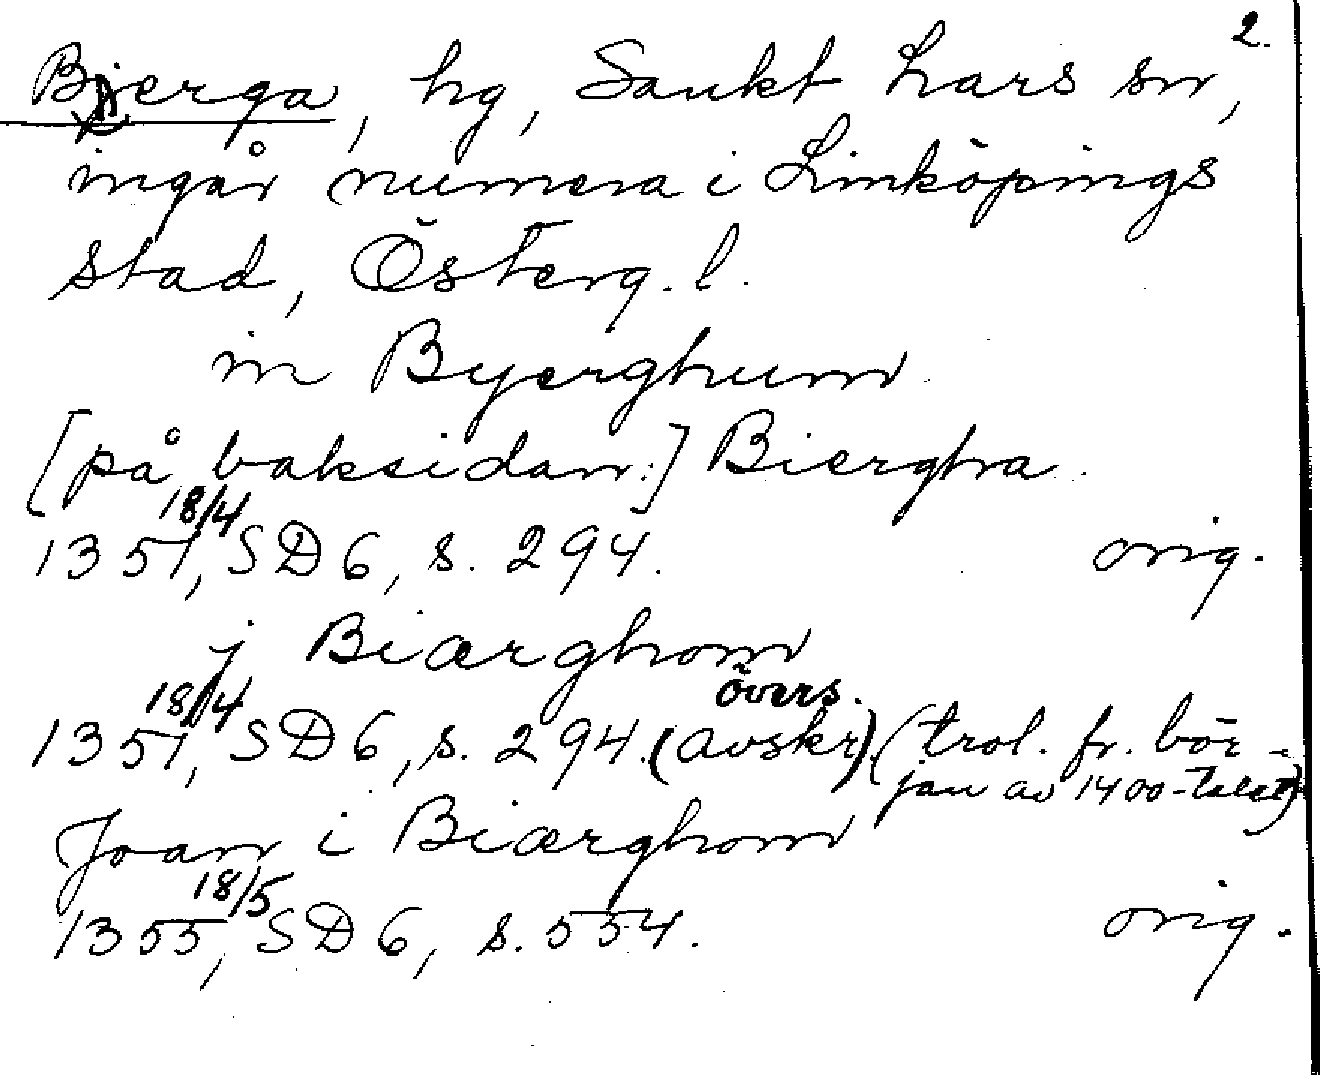 2.
Bjerga, hg, Sankt Lars sn,
ingår numera i Linköpings
stad, Österg. l.
in Byerghum
[på baksidan:] Biergha
1351 18/4, SD 6, s. 294. orig.
j Biærghom
1351 18/4, SD 6, s. 294. (avskr.) övers. (trol. fr. bör-
jan av 1400-talet)
Joan i Biærghom
1355 18/5, SD 6, s. 554. orig.